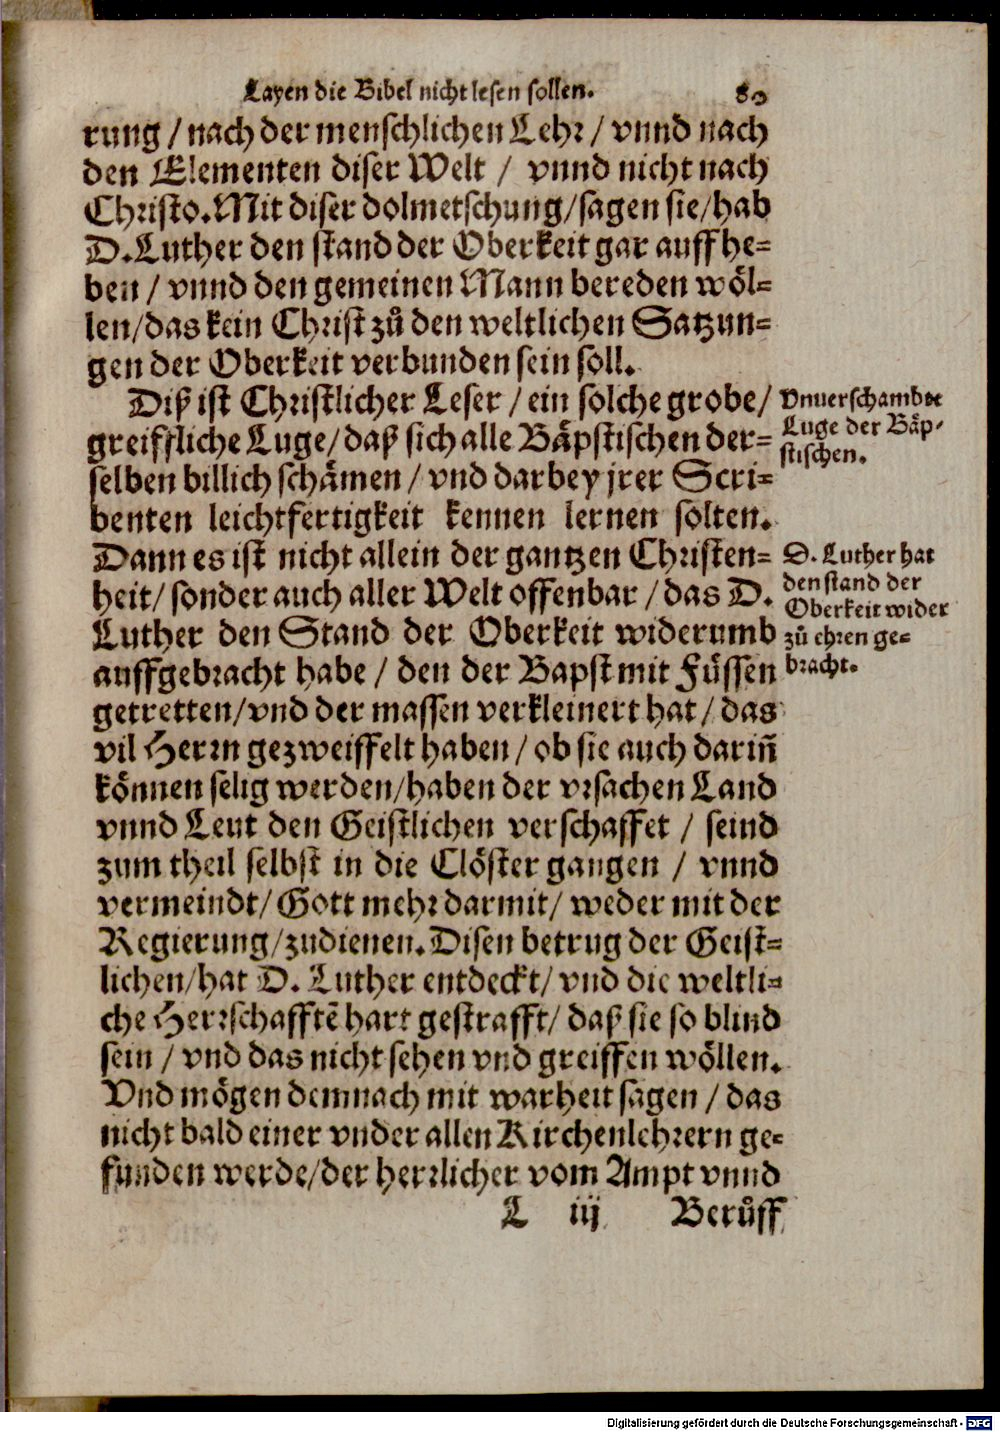 Layen die Bibel nicht lesen sollen. 80
rung / nach der menschlichen Lehr / vnnd nach
den Elementen diser Welt / vnnd nicht nach
Christo. Mit diser dolmetschung / sagen sie / hab
D. Luther den stand der Oberkeit gar auffhe=
ben / vnnd den gemeinen Mann bereden wöl=
len / das kein Christ zů den weltlichen Satzun=
gen der Oberkeit verbunden sein soll.
Diß ist Christlicher Leser / ein solche grobe /
greiffliche Luge / daß sich alle Bäpstischen der=
selben billich schämen / vnd darbey jrer Scri=
benten leichtfertigkeit kennen lernen solten.
Dann es ist nicht allein der gantzen Christen=
heit / sonder auch aller Welt offenbar / das D.
Luther den Stand der Oberkeit widerumb
auffgebracht habe / den der Bapst mit Füssen
getretten / vnd der massen verkleinert hat / das
vil Herrn gezweiffelt haben / ob sie auch darin̄
können selig werden / haben der vrsachen Land
vnnd Leut den Geistlichen verschaffet / seind
zum theil selbst in die Clöster gangen / vnnd
vermeindt / Gott mehr darmit / weder mit der
Regierung / zudienen. Disen betrug der Geist=
lichen / hat D. Luther entdeckt / vnd die weltli=
che Herrschafftē hart gestrafft / daß sie so blind
sein / vnd das nicht sehen vnd greiffen wöllen.
Vnd mögen demnach mit warheit sagen / das
nicht bald einer vnder allen Kirchenlehrern ge=
funden werde / der herrlicher vom Ampt vnnd
L iij Berůff
Vnuerschambte
Luge der Bäp=
stischen.
D. Luther hat
den stand der
Oberkeit wider
zů ehren ge=
bracht.
Digitalisierung gefördert durch die Deutsche Forschungsgemeinschaft - DFG